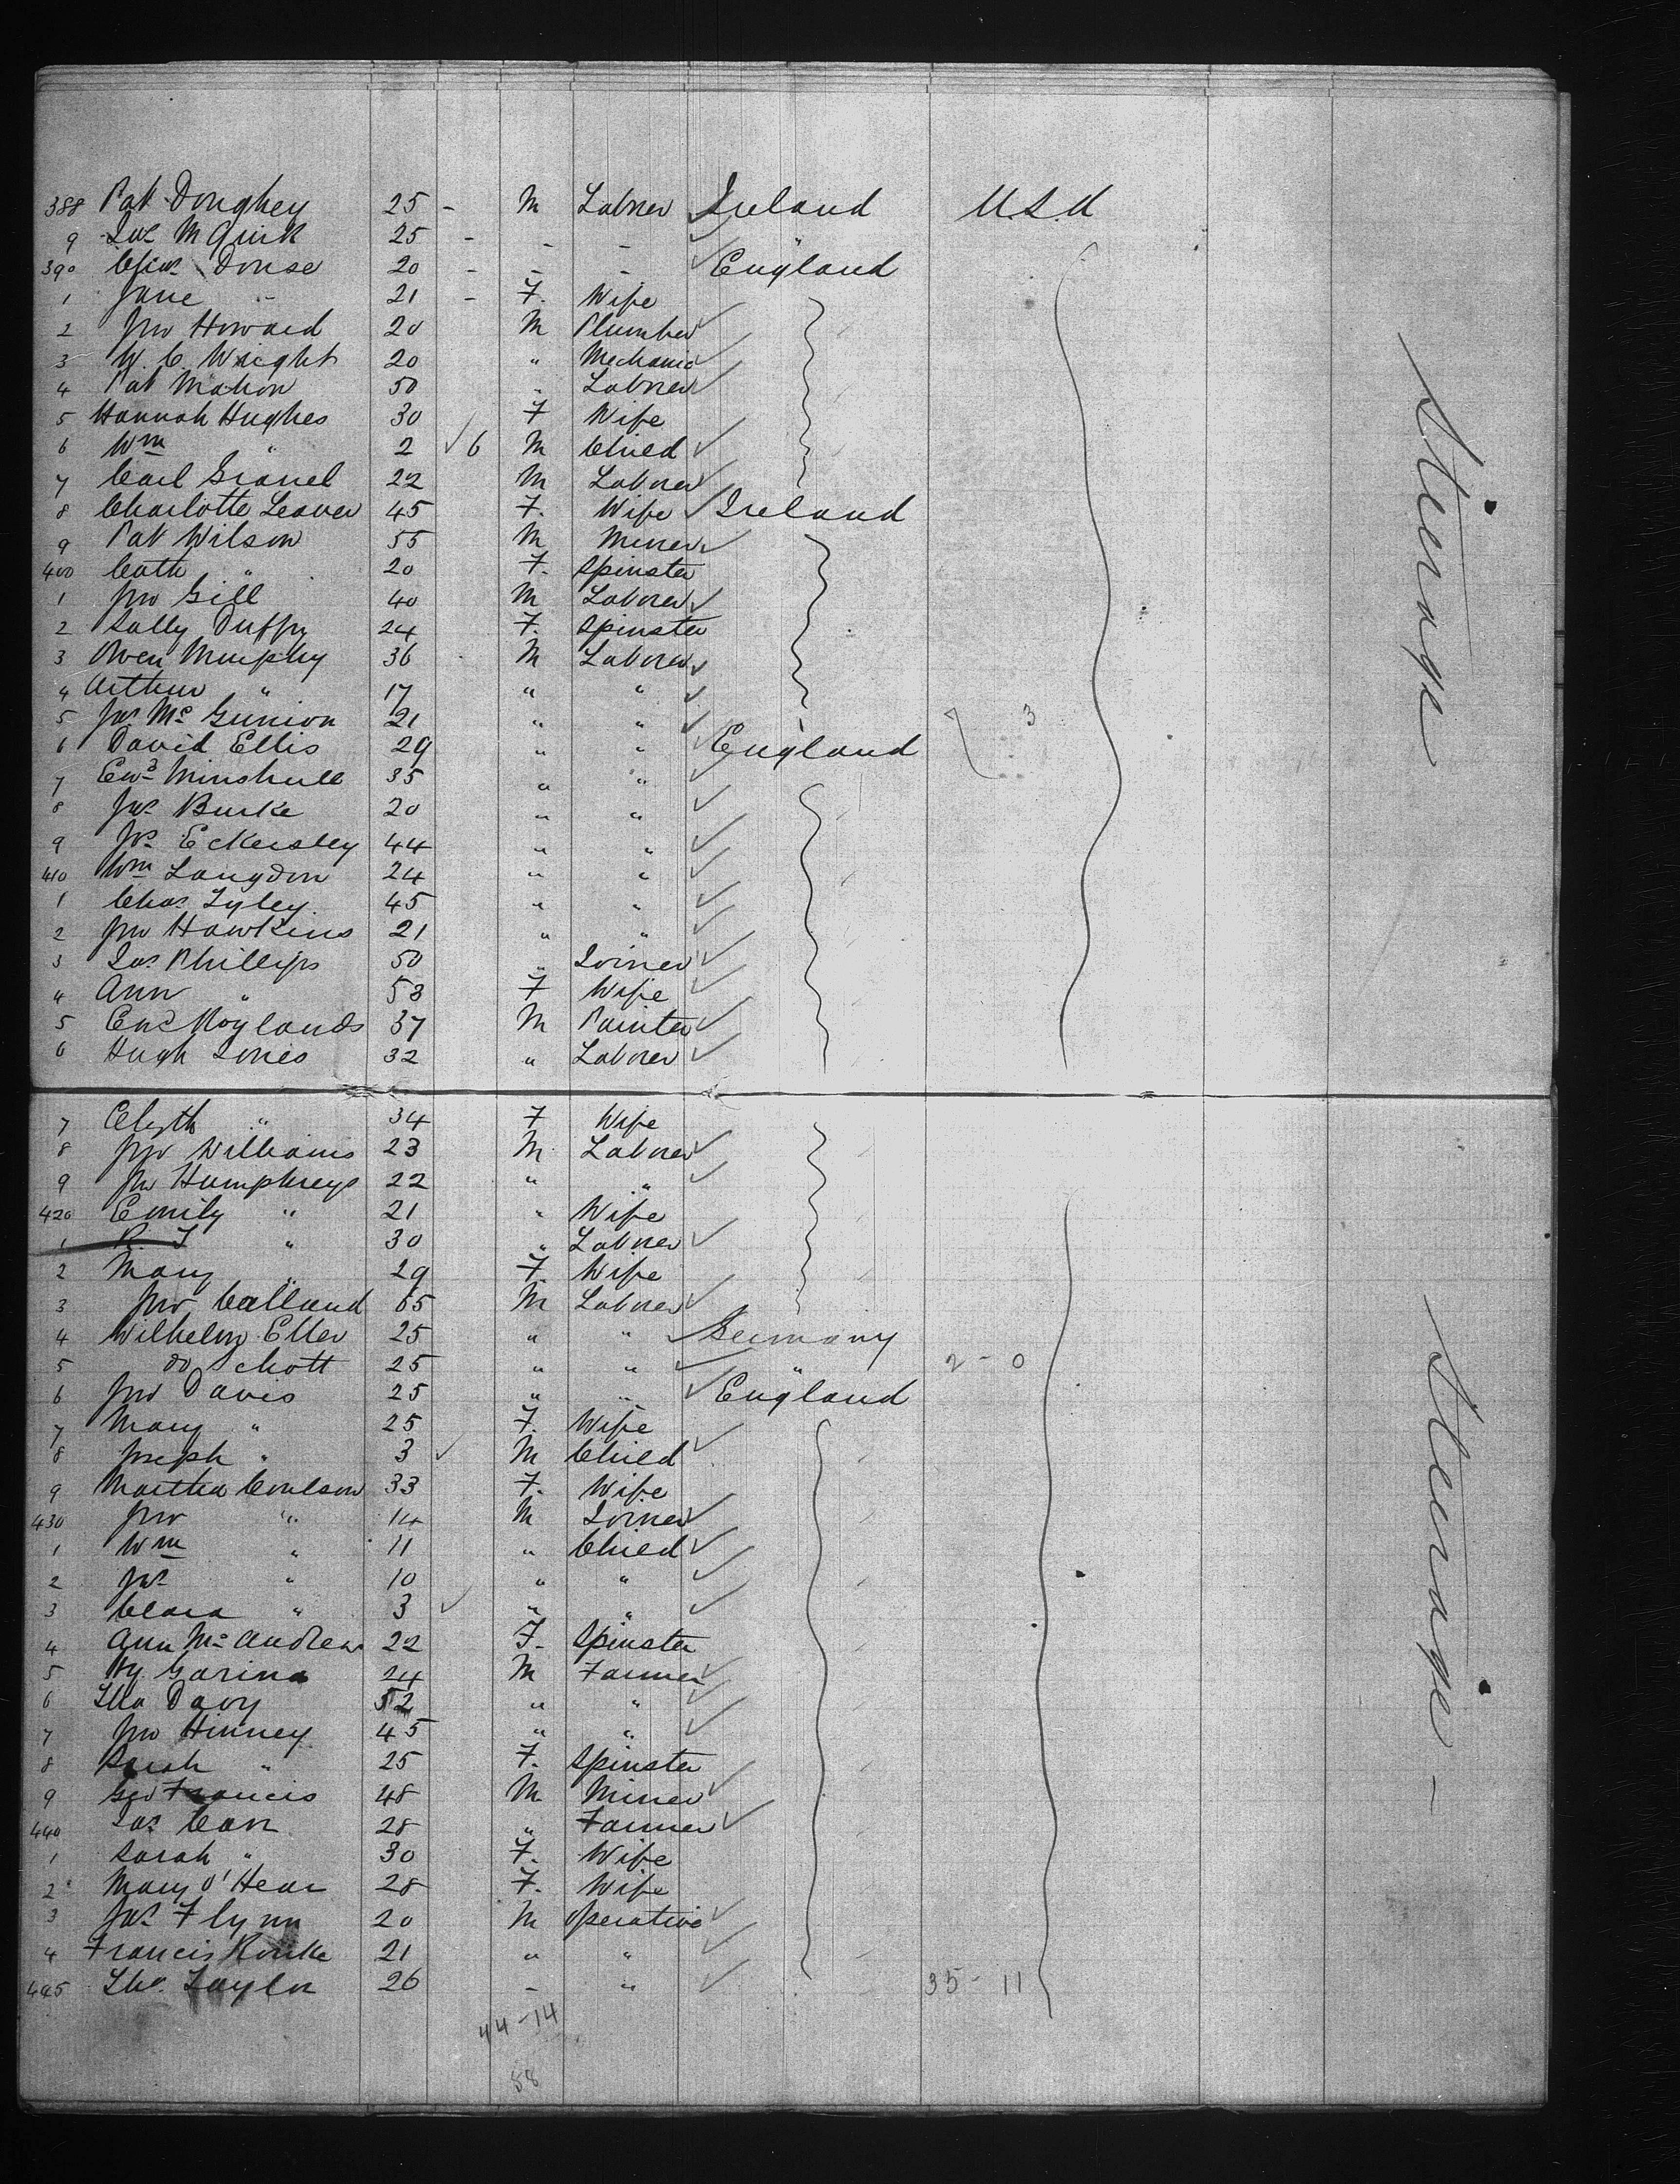 388 Pat Doughey 25 - M Laborer Ireland U.S.A
9 Jas McGuirk 25 - - - "
390 Chas Douse 20 - - - England
1 Jane " 21 - F. Wife
2 Jno Howard 20 M Plumber
3 W. C. Wright 20 " Mechanic
4 Pat Mahon 50 " Laborer
5 Hannah Hughes 30 F Wife
6 Wm " 2 6 M Child
7 Carl Granel 22 M Laborer
8 Charlotte Leaver 45 F. Wife Ireland
9 Pat Wilson 55 M Miner
400 Cath " 20 F. Spinster
1 Jno Gill 40 M Laborer
2 Sally Duffy 24 F. Spinster
3 Owen Murphy 36 M Laborer
4 Arthur " 17 " "
5 Jas Mc Gunion 21 " " 3
6 David Ellis 29 " " England
7 Edwd Minshull 35 " "
8 Jas Burke 20 " "
9 Jos Eckersley 44 " "
410 Wm Langdon 24 " "
1 Chas Lyley 45 " "
2 Jno Hawkins 21 " "
3 Jas Phillips 50 " Joiner
4 Ann " 53 F Wife
5 Roylands 37 M Painter
6 Hugh Jones 32 " Laborer
Steerage
7 Elizth " 34 F Wife
8 Jno Williams 23 M Laborer
9 Jno Humphreys 22 " "
420 Emily " 21 " Wife
1 R. J " 30 " Laborer
2 Mary " 29 F. Wife
3 Jno Calland 65 M Laborer
4 Wilhelm Eller 25 " " Germany
5 do Schott 25 " " " 2 - 0
6 Jno Davis 25 " " England
7 Mary " 25 F. Wife
8 Joseph " 3 M Child
9 Martha Coulson 33 F. Wife
430 Jno " 14 M Joiner
1 Wm " 11 " Child
2 Jas " 10 " "
3 Clara " 3 " "
4 Ann Mc Andrew 22 F. Spinster
5 Hy. Garina 24 M Farmer
6 Davy 52 " "
7 Jno Hinney 45 " "
8 Sarah " 25 F. Spinster
9 Geo Francis 48 M Miner
440 Jas Carr 28 " Farmer
1 Sarah " 30 F. Wife
2 Mary O'Hear 28 F. Wife
3 Jas Flynn 20 M Operative
4 Francis Rourke 21 " "
445 Thos Taylor 26 - " 35 - 11
44-14
58
Steerage -